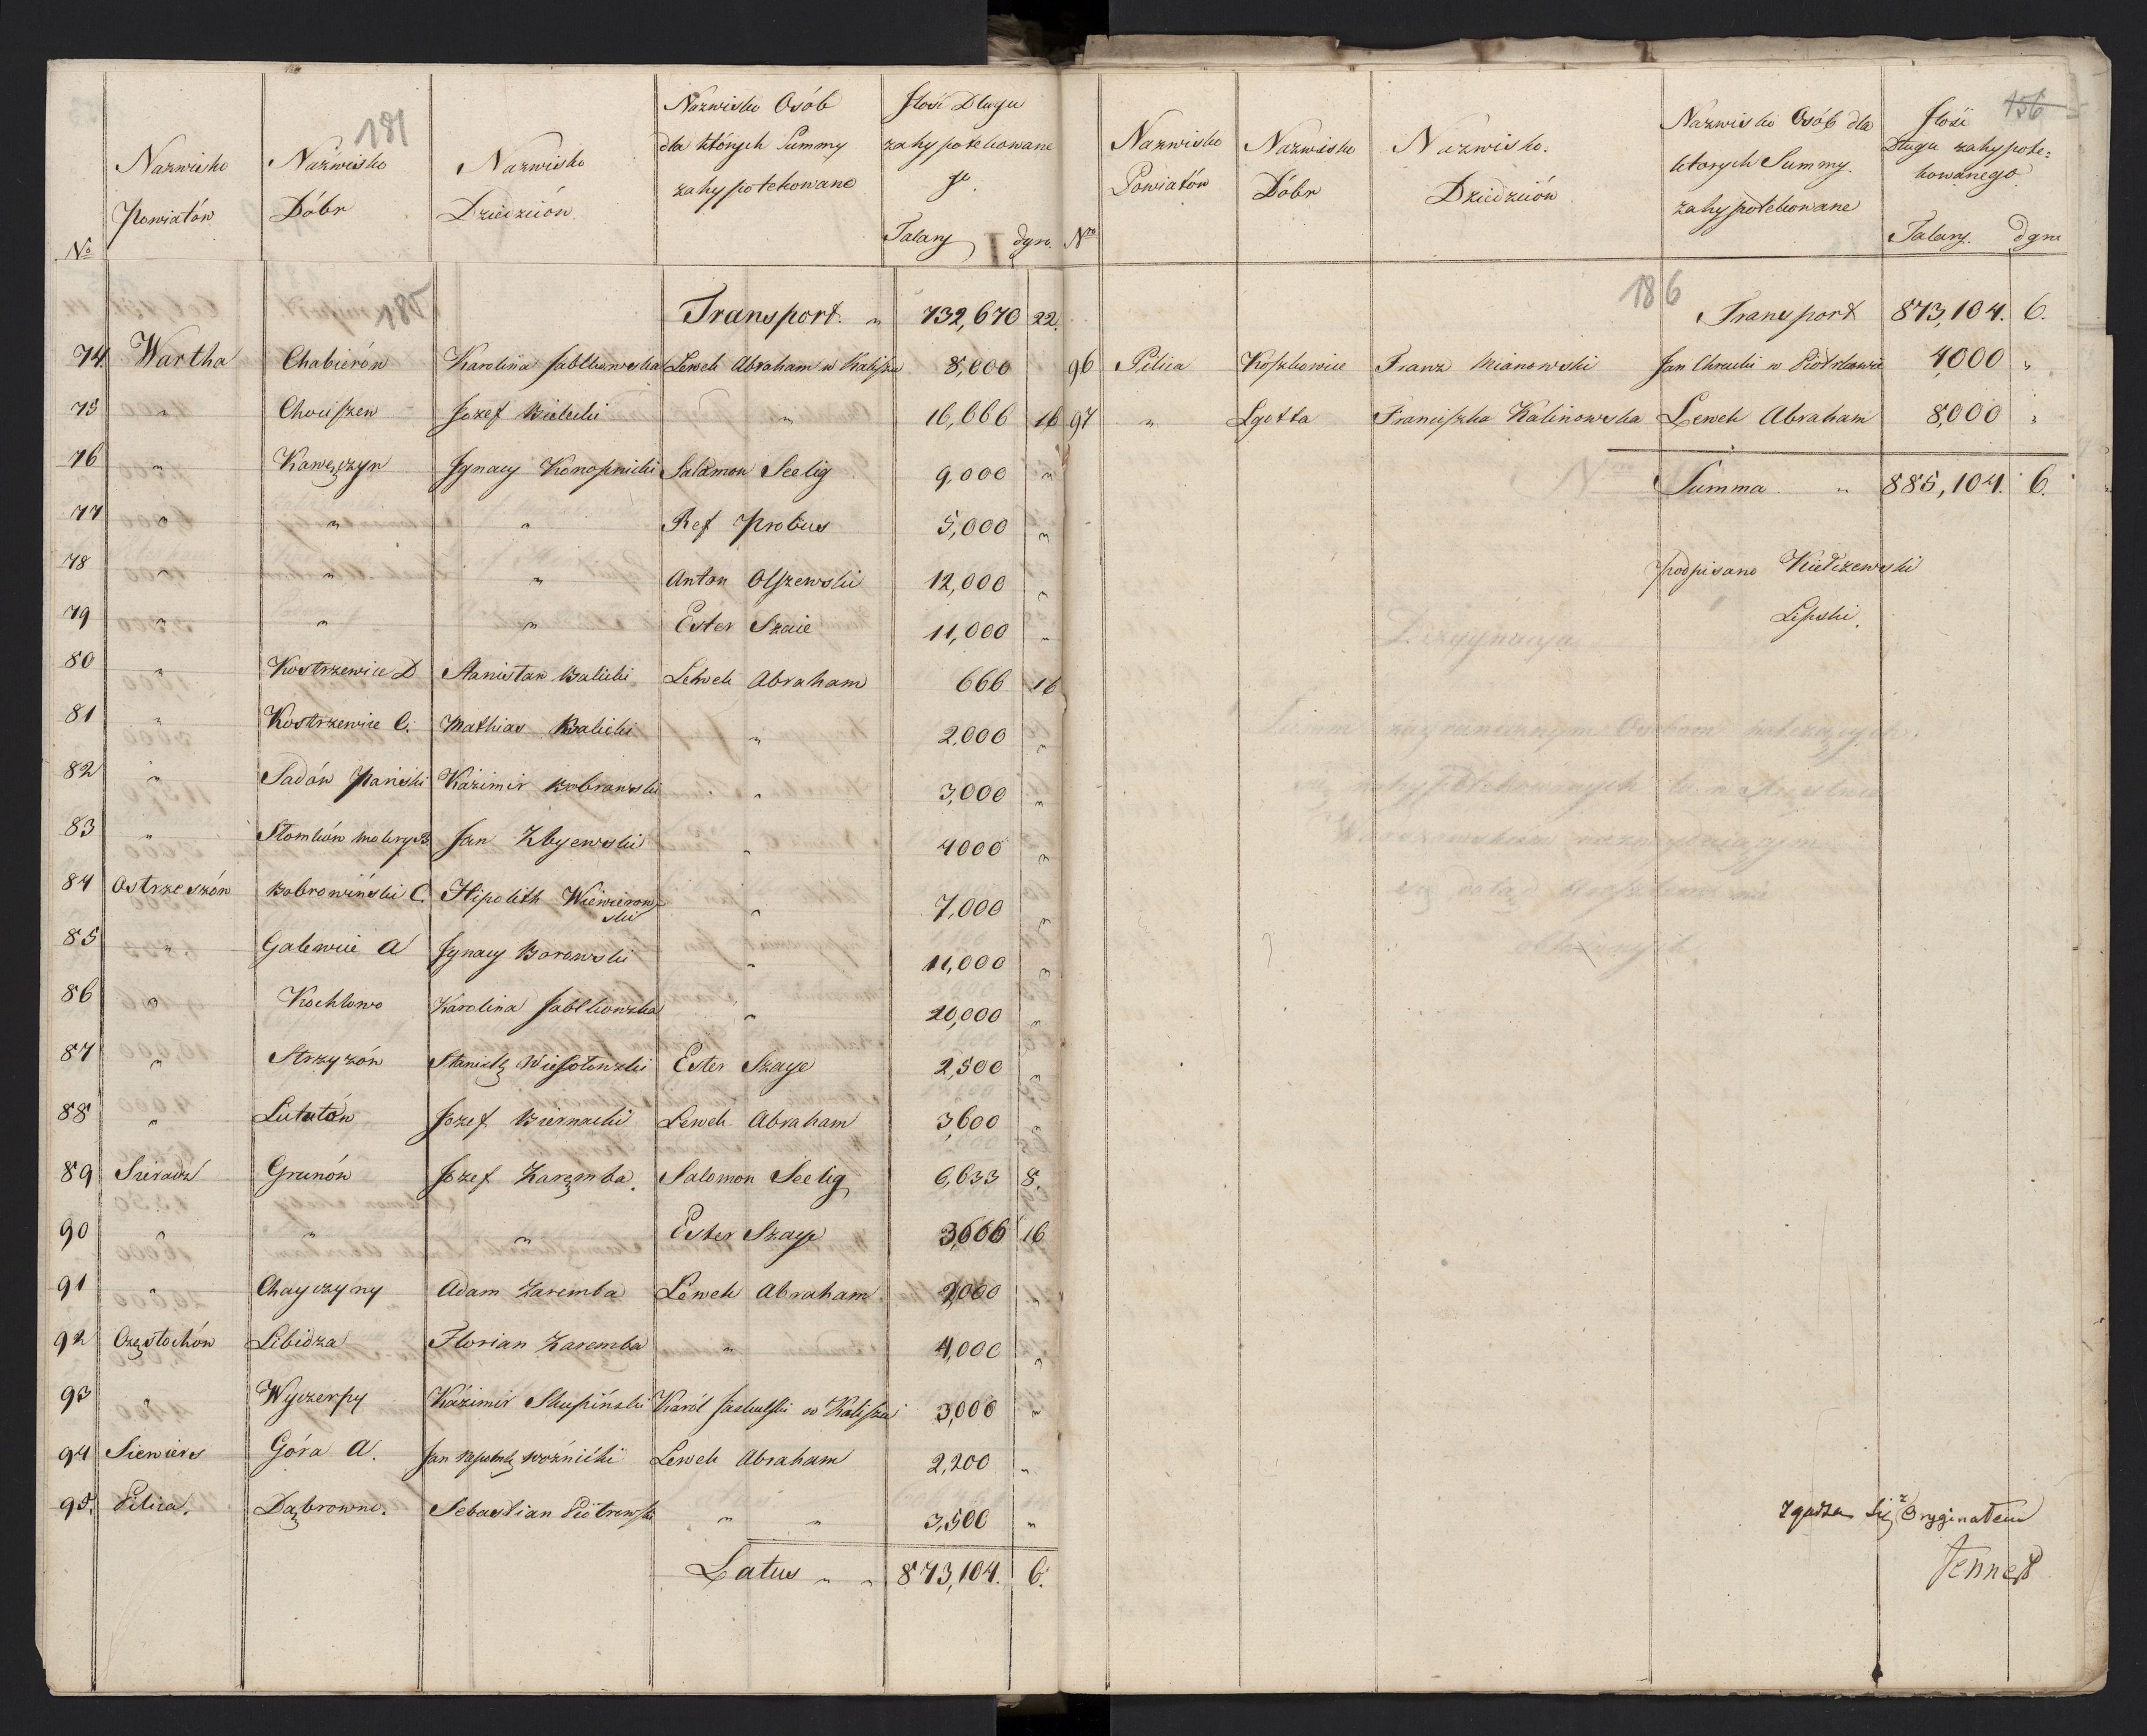 181
No
Nazwisko Powiatów
Nazwisko Dóbr
Nazwisko Dziedziców
Nazwisko Osób dla których Summy zahypotekowane
Ilość Długu zahypotekowane
Talary dgro.
185
Transport. " 732,670 22.
74. Wartha Chabierów Karolina Jabłkowska Lewek Abraham w Kaliszu 8,000
75 " Chociszew Jozef Bielecki " 16,666 16
76 " Kawęczyn Jgnacy Konopnicki Salamon Seelig 9,000 "
77 " " " Ref Probus 5,000 "
78 " " " Anton Olszewski 12,000 "
79 " " " Ester Szaie 11,000 "
80 " Kostrzewice D Stanisław Balicki Lewek Abraham 666 16
81 " Kostrzewice C. Mathias Balicki " 2,000 "
82 " Sadów Pański Kazimir Bobrowski " 3,000 "
83 " Słomków mokry B. Jan Zbyewski " 4000 "
84 Ostrzeszów Bobrowiński C. Hipolith Wiewiorowski " 7,000 "
85 " Galewice A Jgnacy Borowski " 11,000 "
86 " Kochlowo Karolina Jabłkowska " 20,000 "
87 " Strzyzów Wiesołowski Ester Szaye 2,500 "
88 " Lututów Jozef Biernacki Lewek Abraham 3,600 "
89 Sieradz Grunów Jozef Zaręmba. Salomon Seelig 6,633 8.
90 " " " Ester Szaye 3,666 16
91 " Chayczyny Adam Zaremba Lewek Abraham 2,000 "
92 Częstochów Libidza Florian Zaremba " 4,000 "
93 " Wyczerpy Kazimir Skupiński Karól w Kaliszu 3,000 "
94 Siewiers Góra A. Jan Woźnicki Lewek Abraham 2,200 "
95. Pilica. Dąbrowno. Sebastian Piotrowski " " 3,500 "
Latus " " 873,104. 6.
156
Nro
Nazwisko Powiatów
Nazwisko Dóbr
Nazwisko. Dziedziców
Nazwisko Osób dla ktorych Summy. zahypotekowane
Ilość Długu zahypotekowanego
Talary. dgro
186
Transport 873,104. 6.
96 Pilica Koszkowice Franz Mianowski Jan Chrucki w Piotrkowie 4,000 "
97 " Lgotta Franciszka Kalinowska Lewek Abraham 8,000 "
Summa " 885,104. 6.
podpisano Kiełczewski
Lipski.
Zgadza się z Oryginałem
Jenner